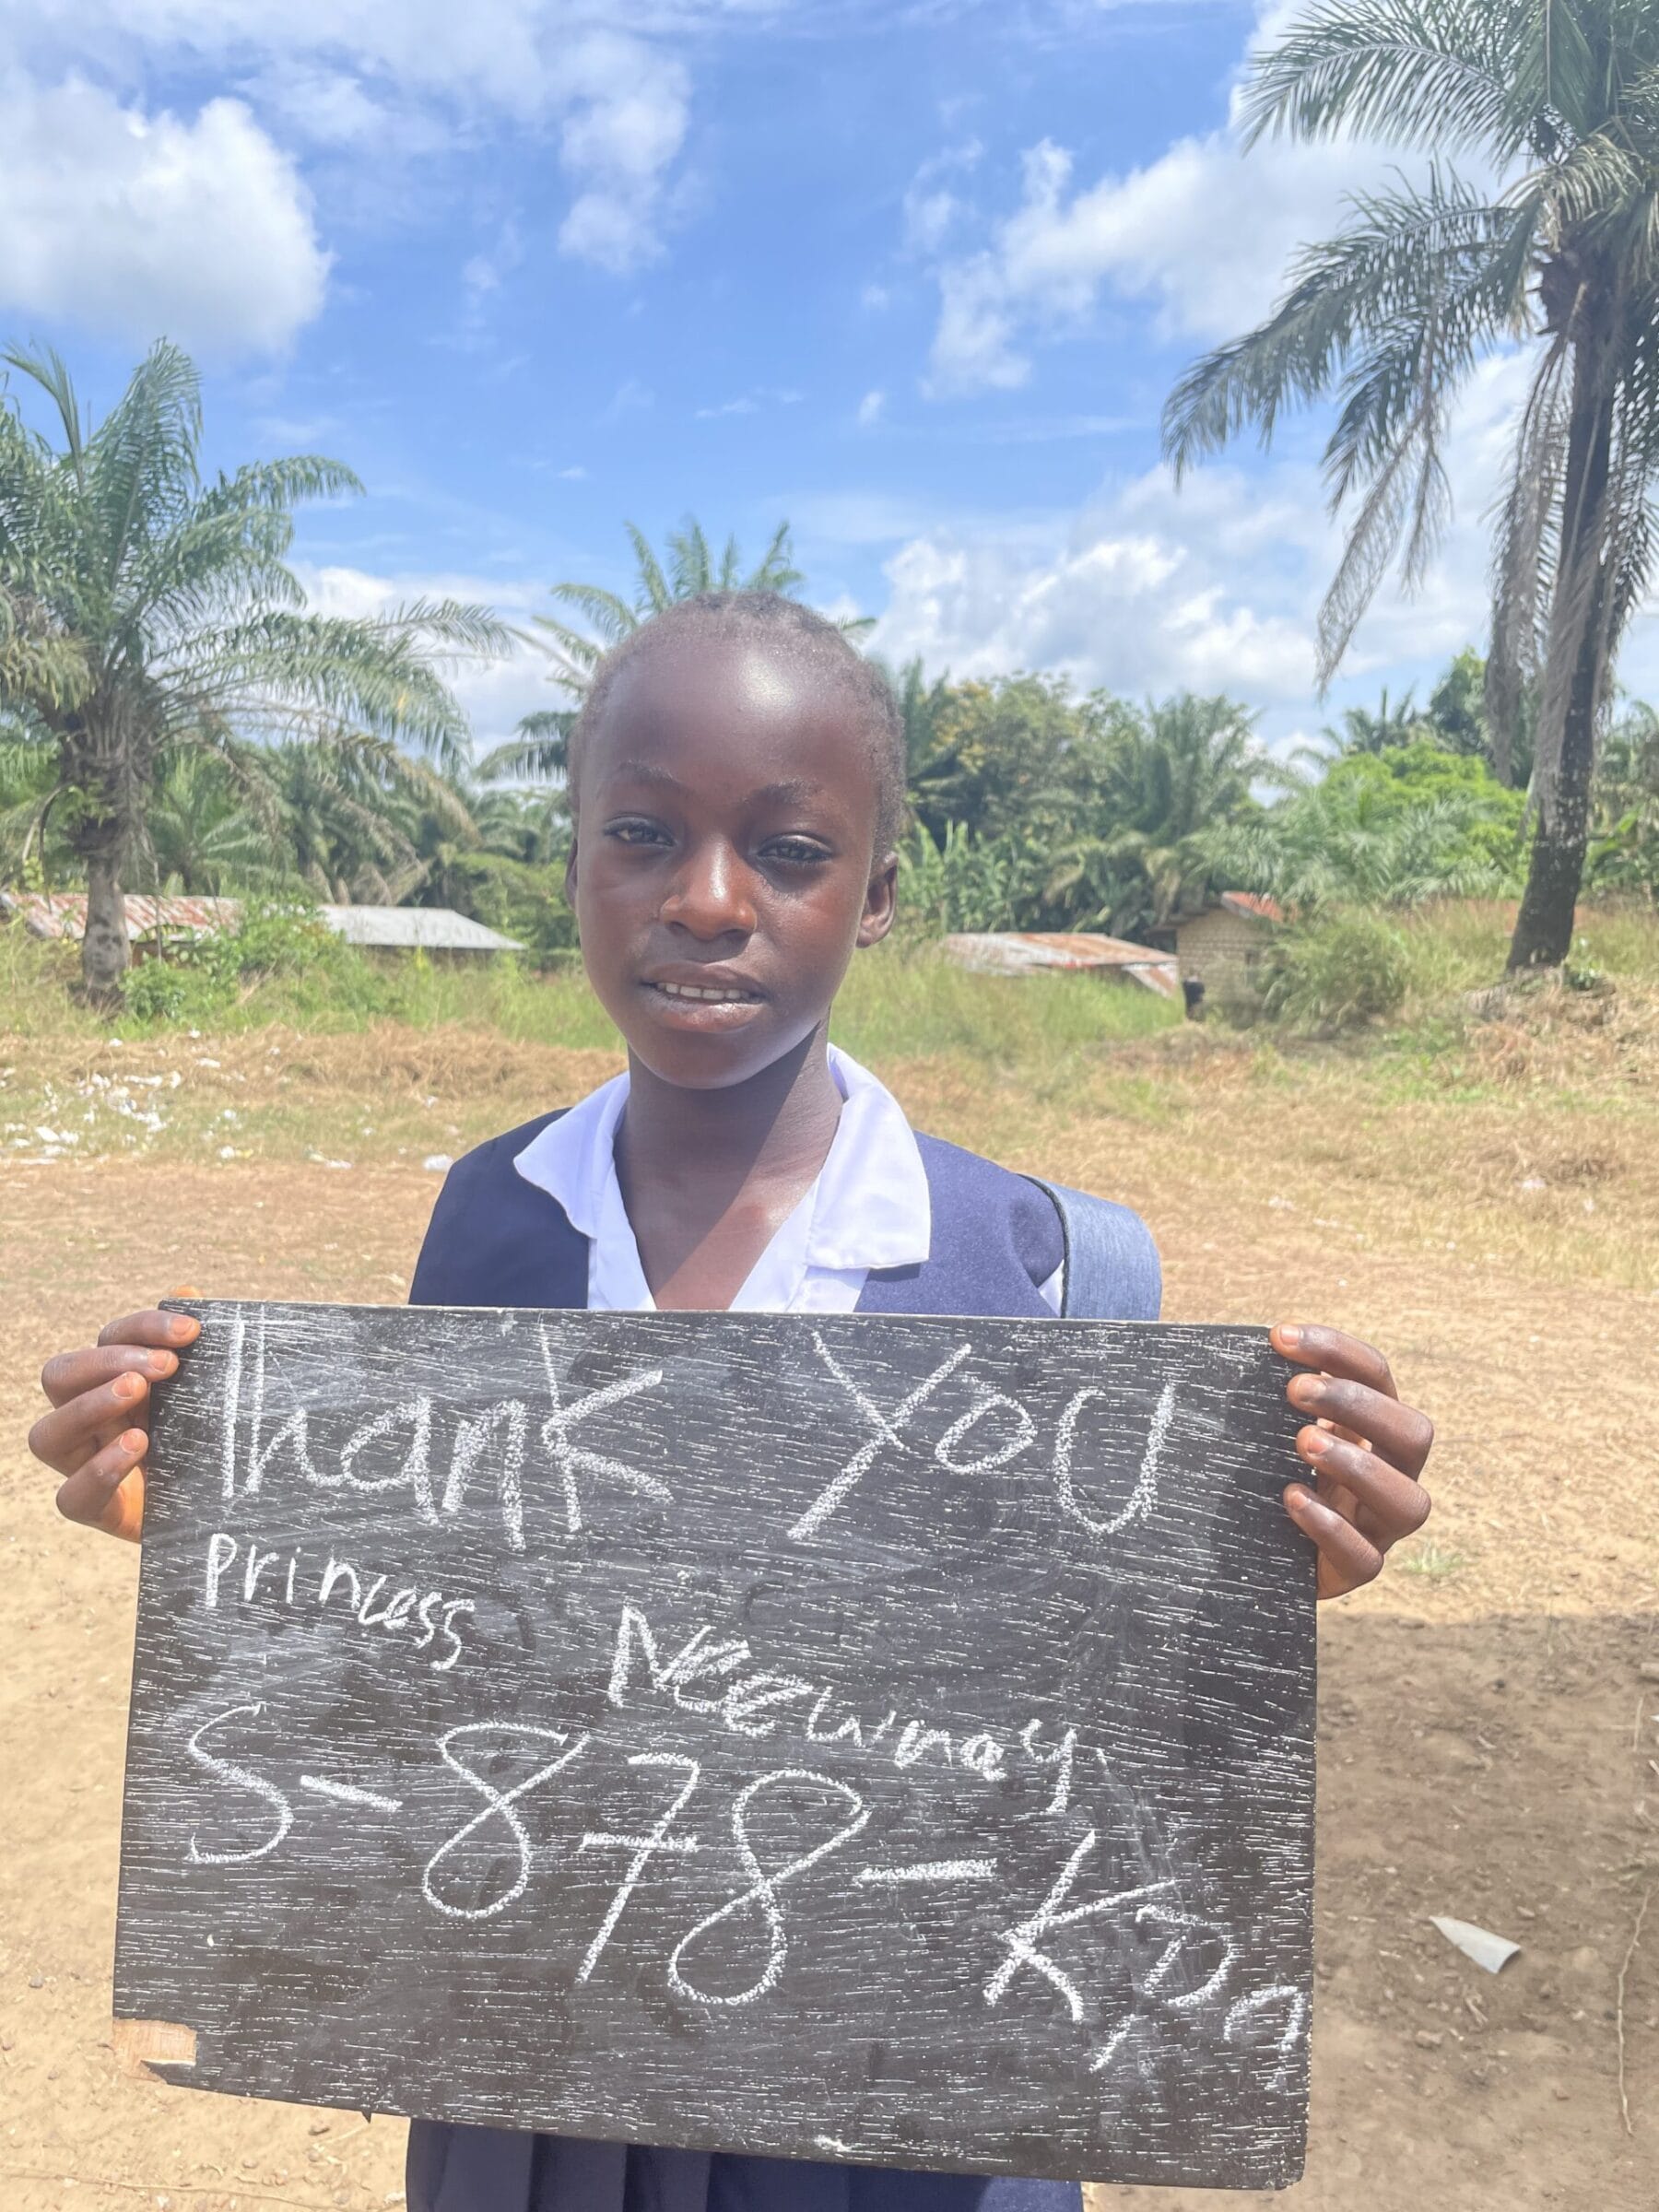 Thank You
Princess Neewray
S-878-KPA